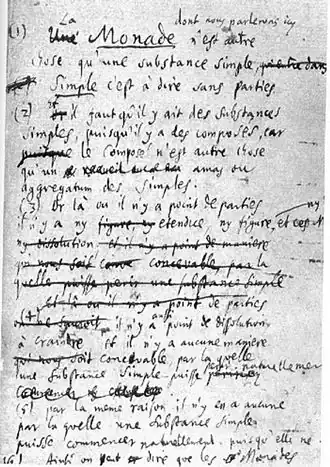 La dont nous parlerons icy
(1) Une Monade n'est autre
chose qu'une substance simple, qui entre dans
Simple c'est à dire sans parties.
(2) et il faut qu'il y ait des substances
simples, puisqu'il y a des composés, car
puisque le composé n'est autre chose
qu'un recueil amas ou
aggregatum des simples.
(3) Or là où il n'y a point de parties
il n'y a ny figure, ny etendue, ny figure, et
ny dissolution et il n'y a point de maniere
qui nous soit concevable, par la
quelle puisse perir une substance simple
Et là où il n'y a point de parties
(4) il n'y a aussi point de dissolution
à craindre et il n'y a aucune maniere
qui nous soit concevable par la quelle
une substance simple puisse perir naturellement
(5) par la même raison il n'y en a aucune
par la quelle une substance simple
puisse commencer naturellement, puisqu'elle ne
(6) Ainsi on peut dire que les Monades